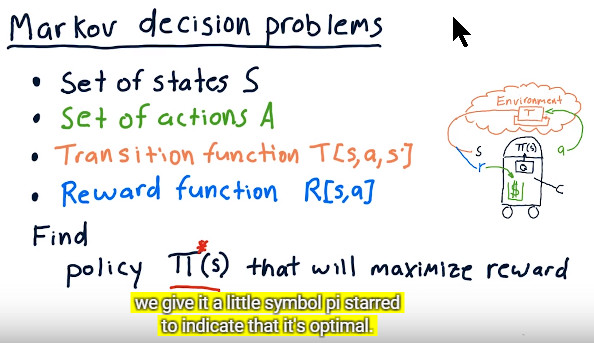 Markov decision problems
• Set of states S
• Set of actions A
• Transition function T[s,a,s']
• Reward function R[s,a]
Find
policy π*(s) that will maximize reward
Environment
T
s
r
a
π(s)
Q
$
we give it a little symbol pi starred
to indicate that it's optimal.